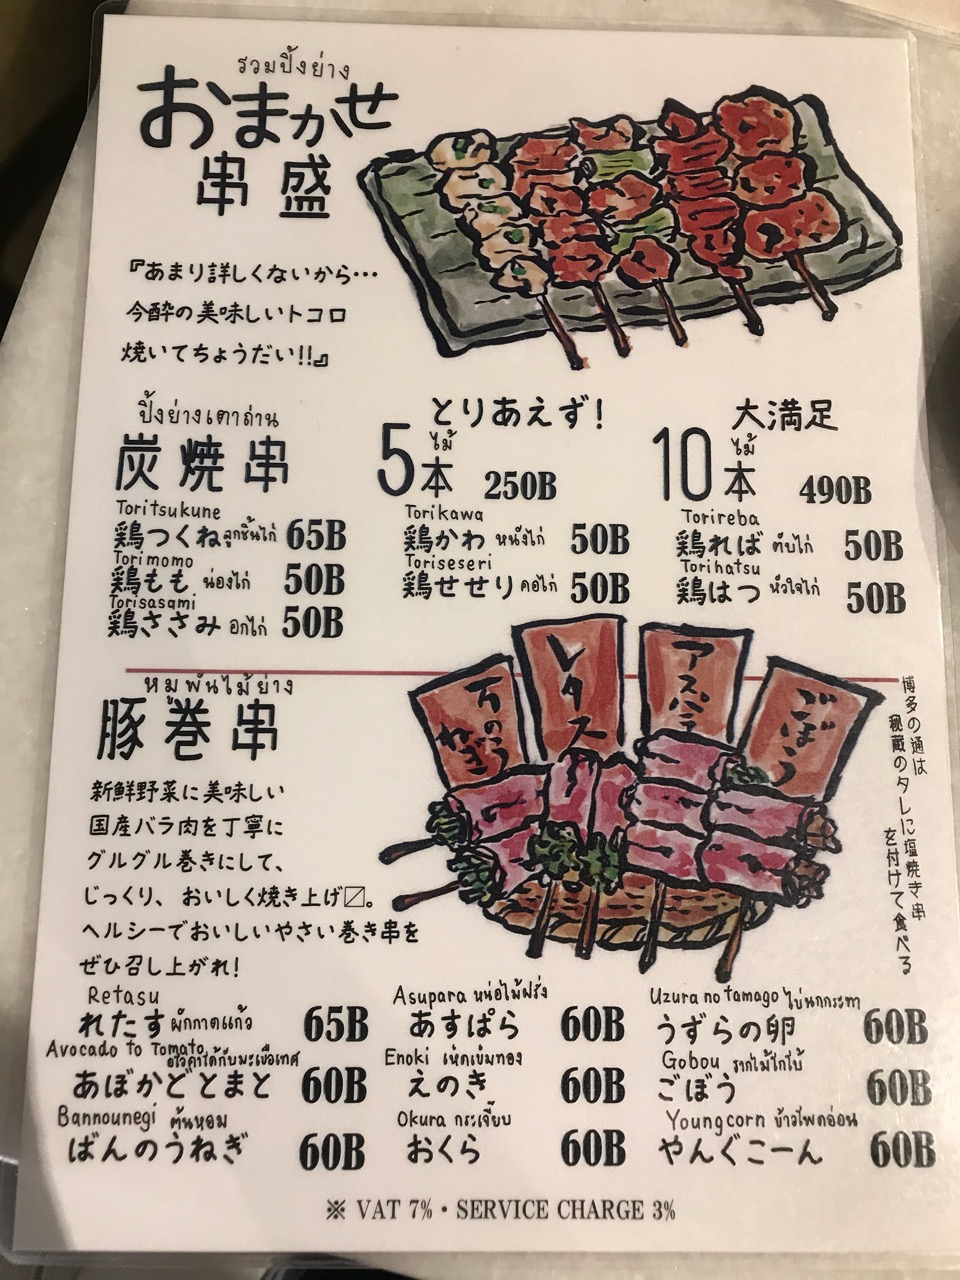 รวมปิ้งย่าง
おまかせ
串盛
『あまり詳しくないから…
今酔の美味しいトコロ
焼いてちょうだい!!』
ปิ้งย่างเตาถ่าน
炭焼串
とりあえず!
5本 ไม้ 250B
大満足
10本 ไม้ 490B
Toritsukune
鶏つくね ลูกชิ้นไก่ 65B
Torikawa
鶏かわ หนังไก่ 50B
Torireba
鶏ればตับไก่ 50B
Torimomo
鶏もも น่องไก่ 50B
Toriseseri
鶏せせり คอไก่ 50B
Torihatsu
鶏はつ หัวใจไก่ 50B
Torisasami
鶏ささみ อกไก่ 50B
หมูพันไม้ย่าง
豚巻串
新鮮野菜に美味しい
国産バラ肉を丁寧に
グルグル巻きにして、
じっくり、おいしく焼き上げ〼。
ヘルシーでおいしいやさい巻き串を
ぜひ召し上がれ!
万のうねぎ
レタス
アスパラ
ごぼう
博多の通は
秘蔵のタレに塩焼き串
を付けて食べる
Retasu
れたす ผักกาดแก้ว 65B
Asupara หน่อไม้ฝรั่ง
あすぱら 60B
Uzura no tamago ไข่นกกระทา
うずらの卵 60B
Avocado to Tomato อโวคาโด้กับมะเขือเทศ
あぼかどとまと 60B
Enoki เห็ดเข็มทอง
えのき 60B
Gobou รากไม้โกโบ้
ごぼう 60B
Bannounegi ต้นหอม
ばんのうねぎ 60B
Okura กระเจี๊ยบ
おくら 60B
Youngcorn ข้าวโพดอ่อน
やんぐこーん 60B
※ VAT 7%・SERVICE CHARGE 3%